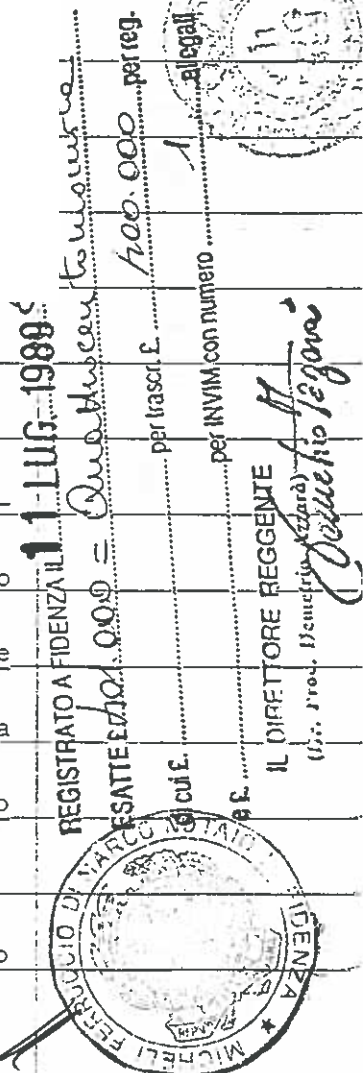 REGISTRATO A FIDENZA IL 11 LUG. 1989
ESATTE £ 401.000 = Quattrocentounomila
di cui £. per trascr. £. 400.000 per reg.
e £. per INVIM con numero 1 allegati
IL DIRETTORE REGGENTE
Demetrio
MICHELI FERRUCCIO DI MARCO NOTAIO FIDENZA ★